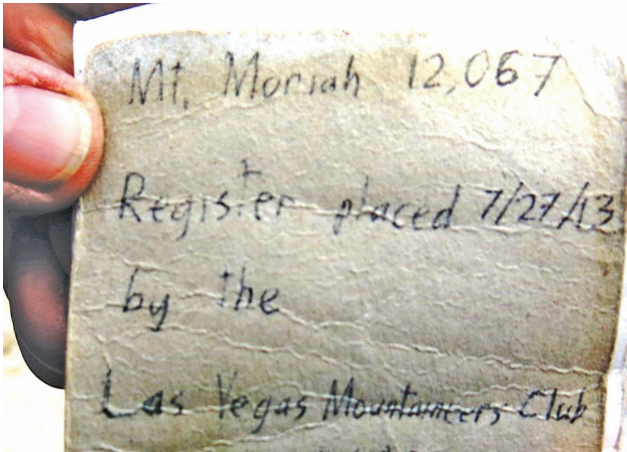 Mt. Moriah 12,067
Register placed 7/27/13
by the
Las Vegas Mountaineers Club